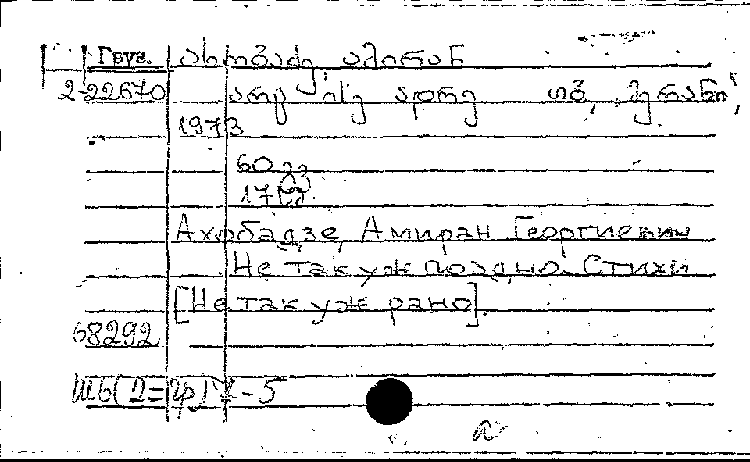 Груз. ახობაძე, ამირან
2-22670 არც ისე ადრე თბ, „მერანი“,
1973
60 გვ.
17კ.
Ахобадзе, Амиран Георгиевич
Не так уж поздно. Стихи
[Не так уж рано].
68292
Ш6(2=Гр)7-5